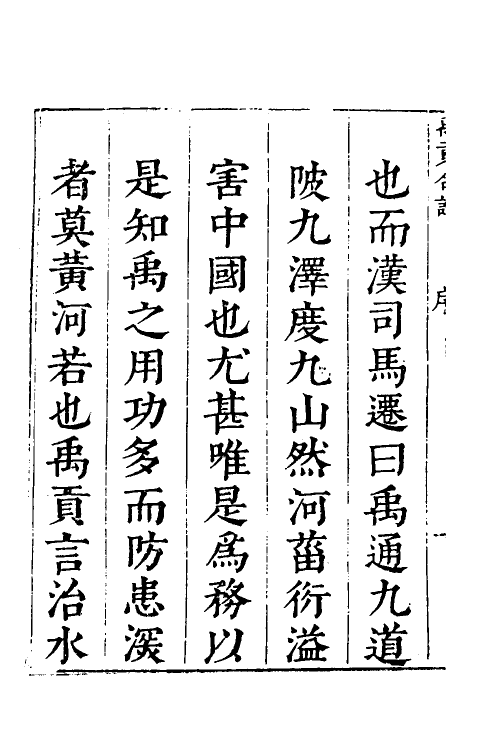 也而漢司馬遷曰禹通九道
陂九澤度九山然河菑衍溢
害中國也尤甚唯是爲務以
是知禹之用功多而防患深
者莫黃河若也禹貢言治水